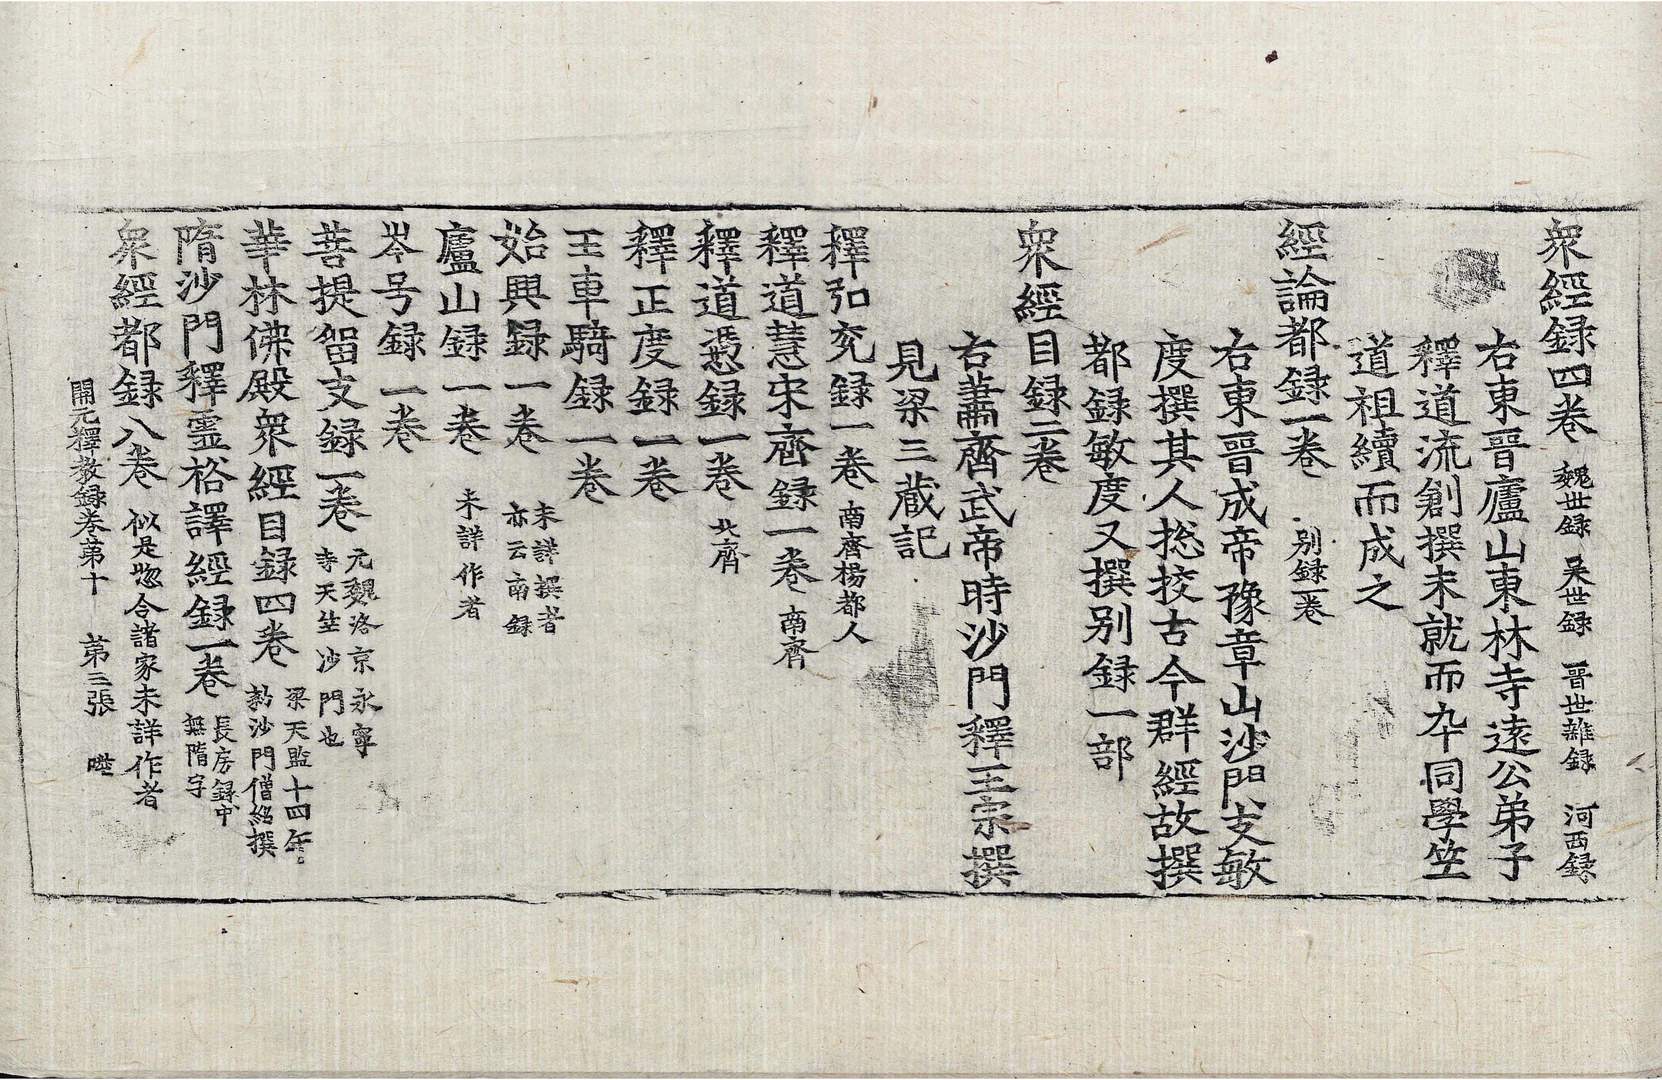 衆經録四卷 魏世録 吴世録 晋世雜録 河西録
右東晋廬山東林寺遠公弟子
釋道流創撰未就而卒同學竺
道祖續而成之
經論都録一卷 别録一卷
右東晋成帝豫章山沙門支敏
度撰其人捴挍古今群經故撰
都録敏度又撰别録一部
衆經目録二卷
右蕭齊武帝時沙門釋王宗撰
見梁三藏記
釋弘充録一卷 南齊楊都人
釋道慧宋齊録一卷 南齊
釋道憑録一卷 北齊
釋正度録一卷
王車騎録一卷
始興録一卷 未詳撰者
亦云南録
廬山録一卷 未詳作者
岑号録一卷
菩提留支録一卷 元魏洛京永寧
寺天竺沙門也
華林佛殿衆經目録四卷 梁天監十四年
勑沙門僧紹撰
隋沙門釋靈格譯經録一卷 長房録中
無隋字
衆經都録八卷 似是惣合諸家未詳作者
開元釋教録卷第十 第三張 𡋯